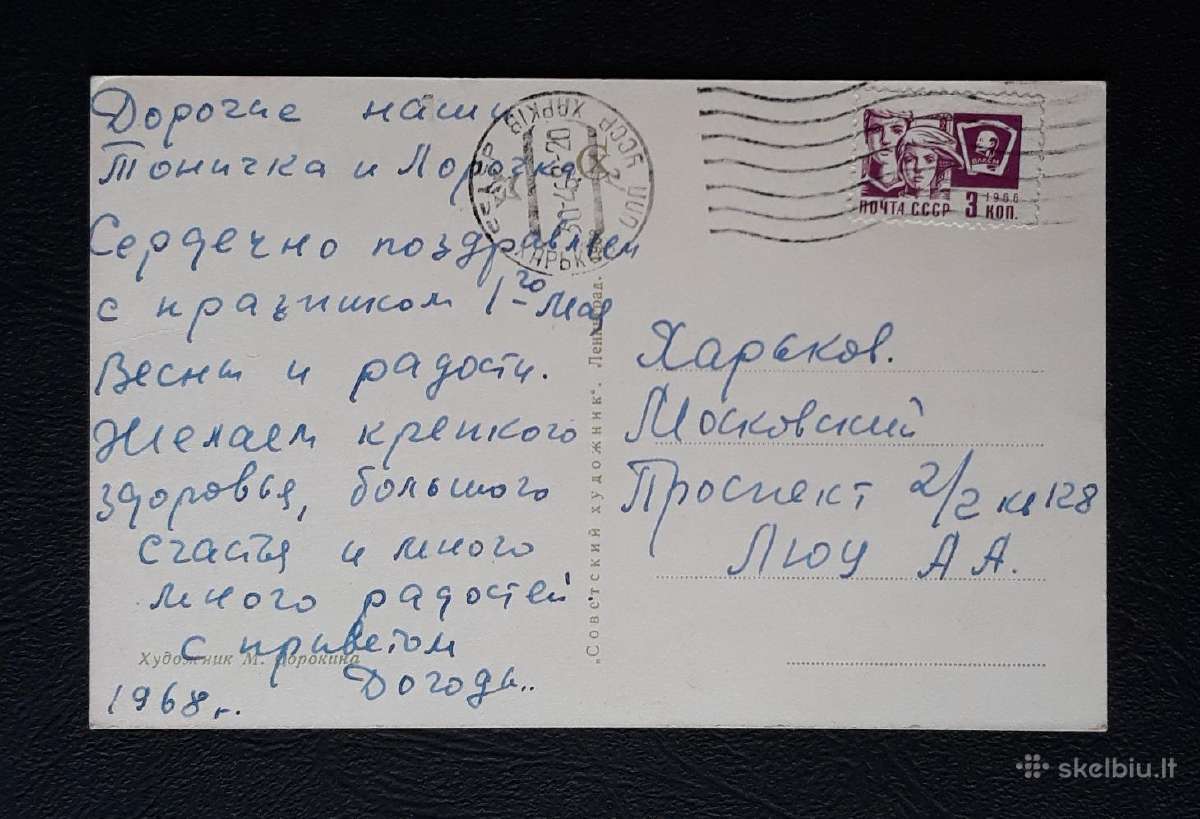 Дорогие наши
Тоничка и Лорочка
Сердечно поздравляем
с празником 1го Мая
Весны и радости.
Желаем крепкого
здоровья, большого
счастья и много
много радостей
с приветом
1968 г.
Художник М. Сорокина
"Советский художник". Ленинград.
УССР ХАРКІВ
ХАРЬКОВ
ПОЧТА СССР 3 КОП.
1966
ВЛКСМ
Харьков.
Московский
Проспект 2/2 кв 128
Люу А А.
skelbiu.lt